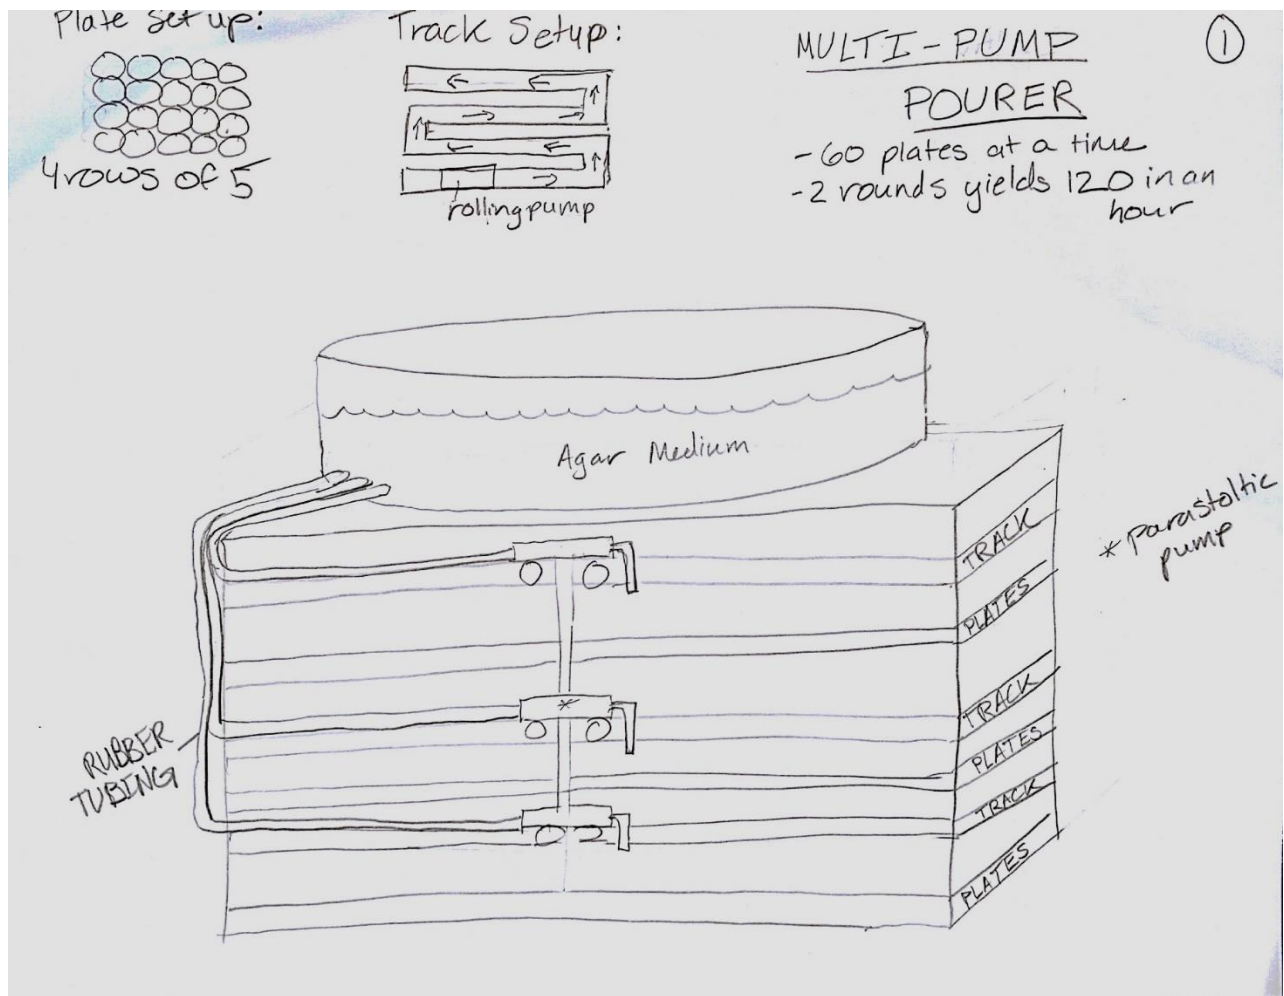 Plate Set up:
4 rows of 5
Track Setup:
rolling pump
MULTI-PUMP
POURER
①
- 60 plates at a time
- 2 rounds yields 120 in an
hour
Agar Medium
* Parastoltic
pump
TRACK
PLATES
TRACK
PLATES
TRACK
PLATES
*
RUBBER
TUBING